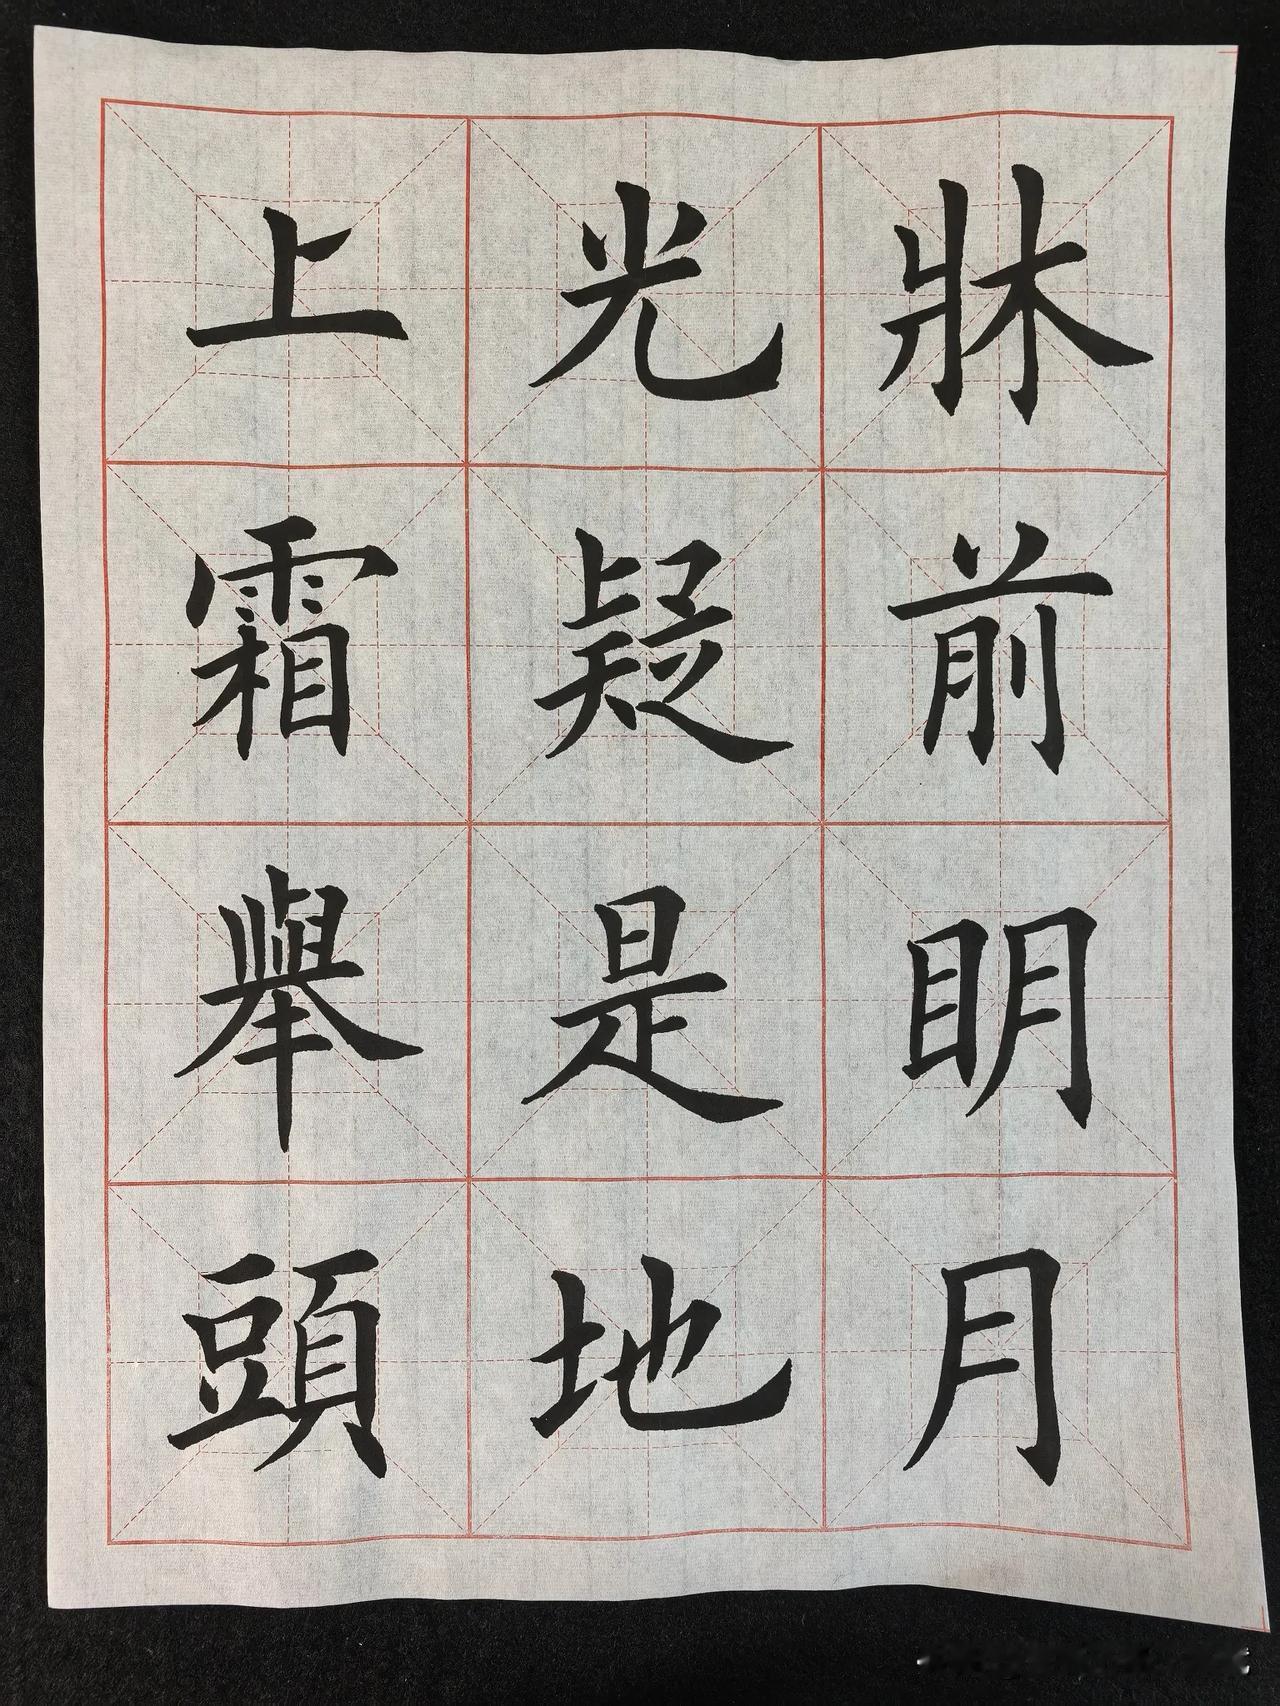 牀前明月
光疑是地
上霜舉頭